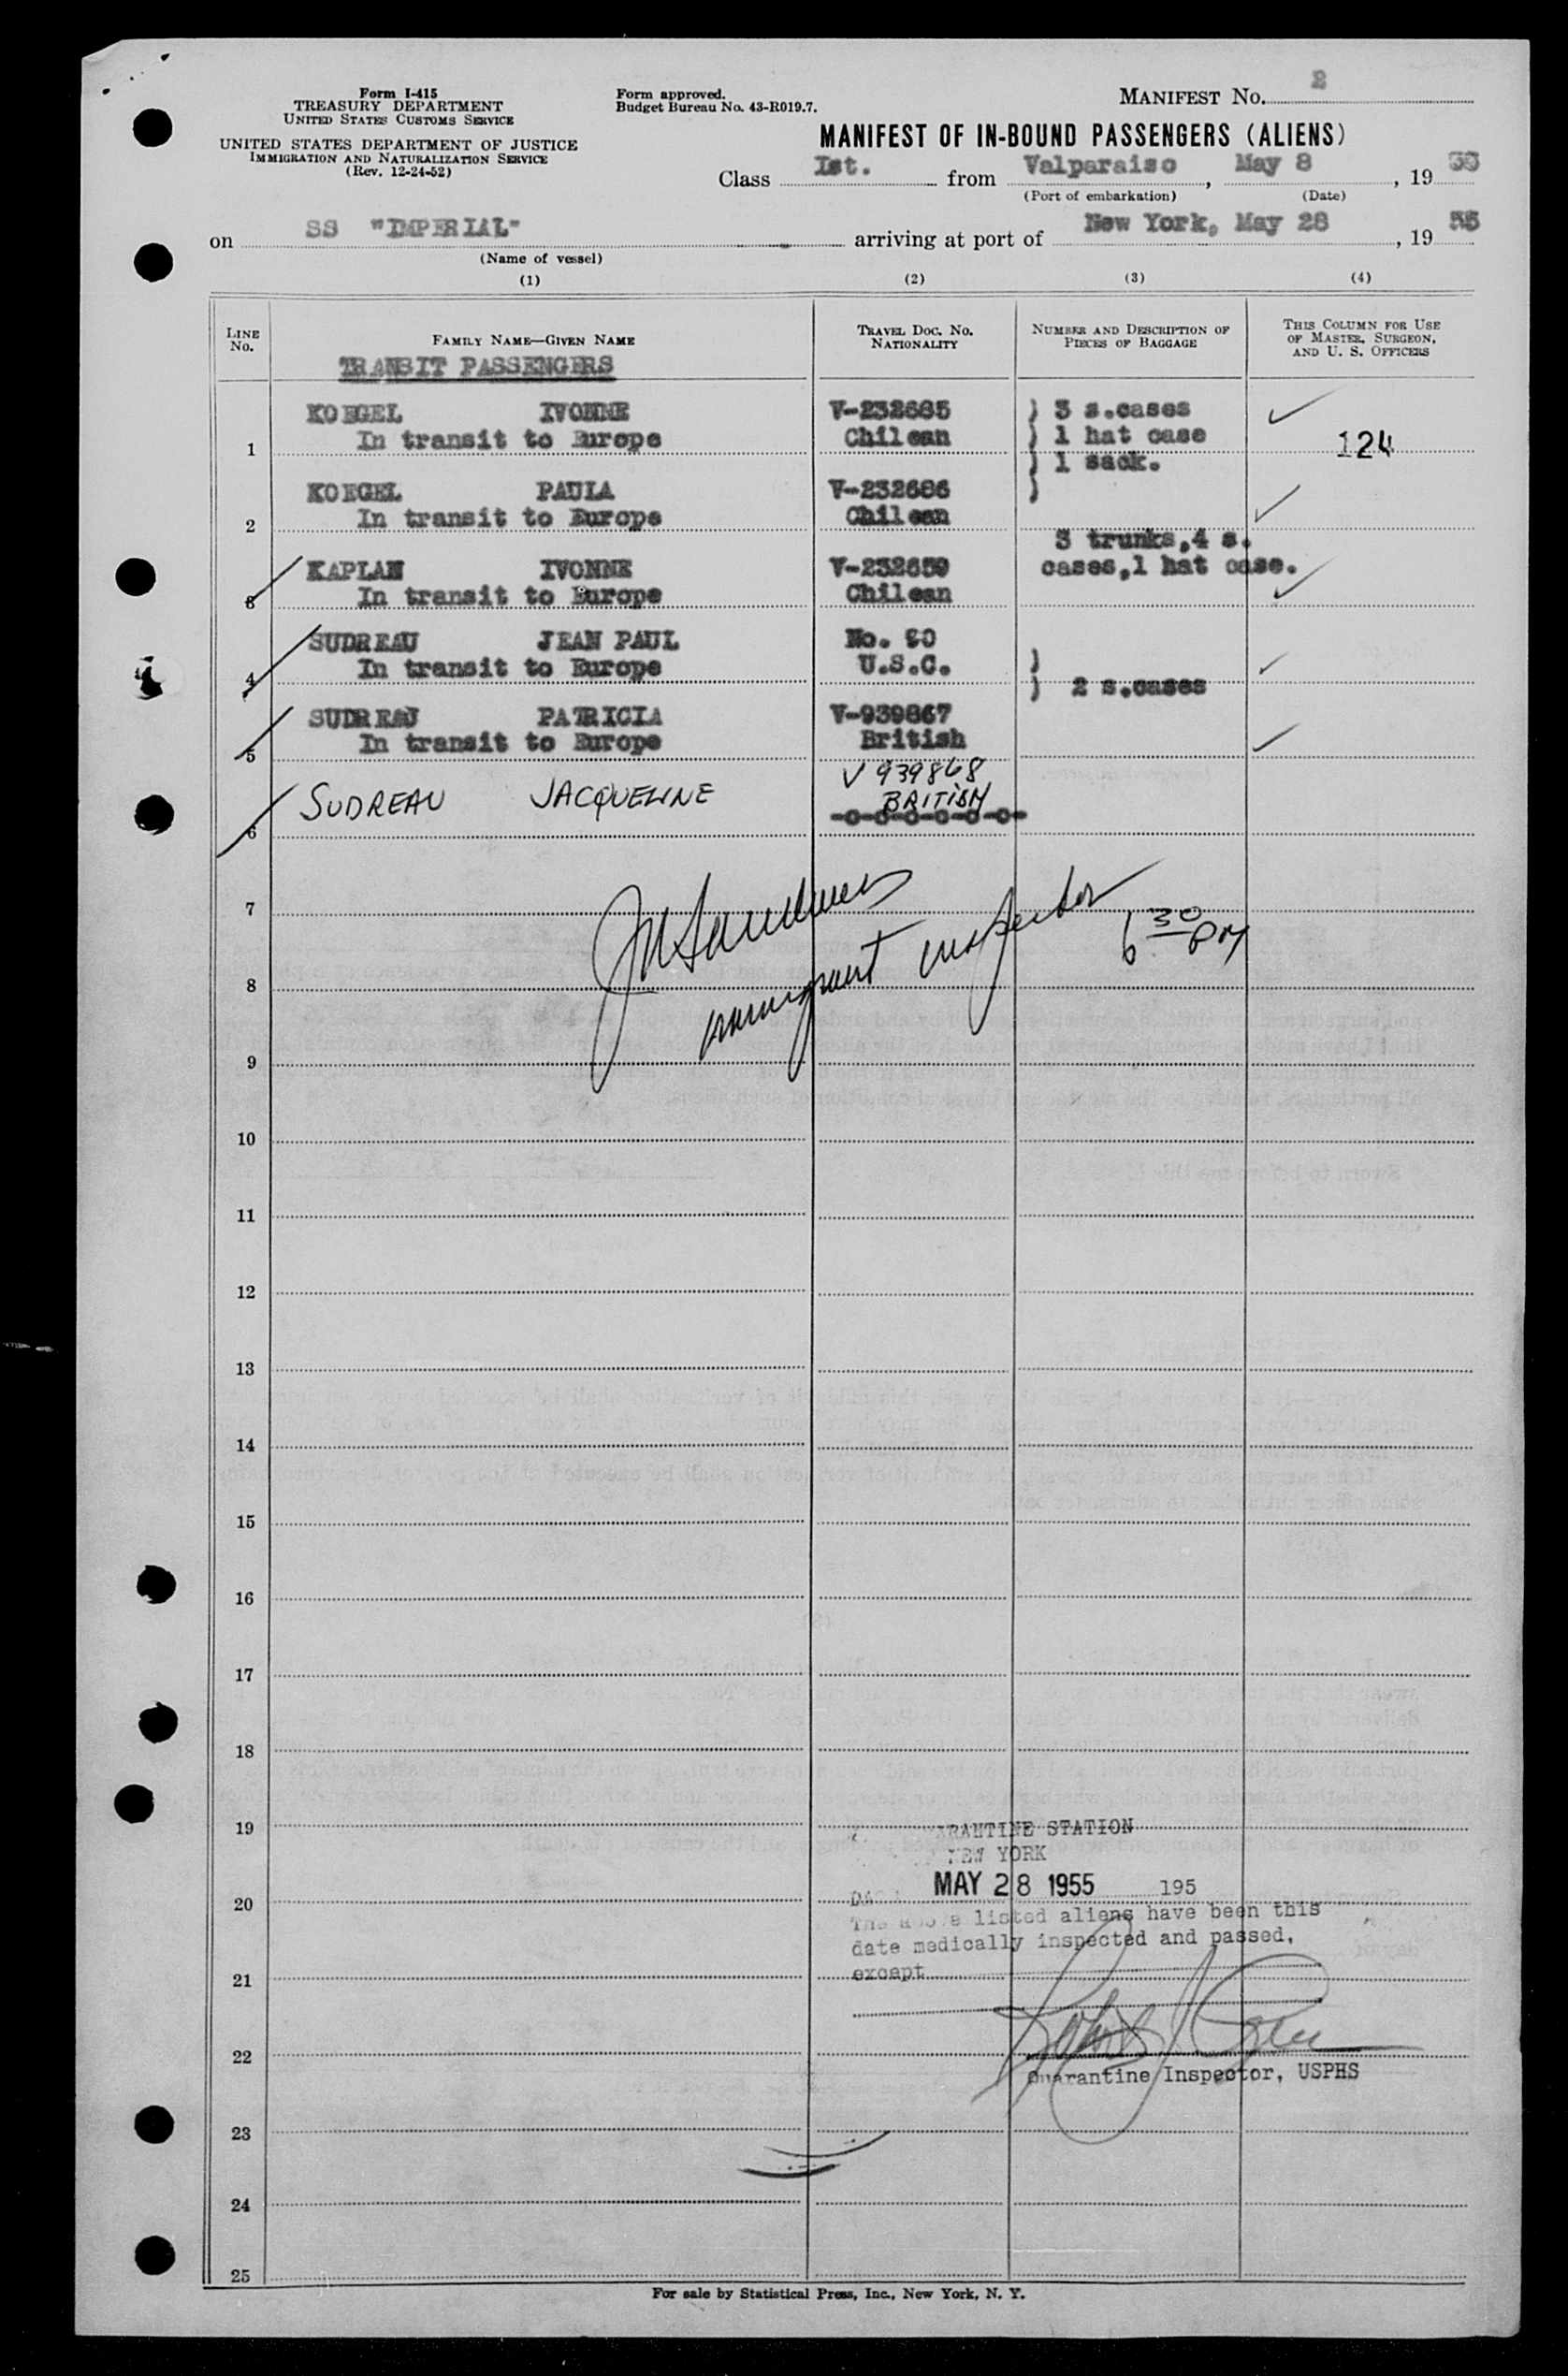 Form I-415
TREASURY DEPARTMENT
UNITED STATES CUSTOMS SERVICE
UNITED STATES DEPARTMENT OF JUSTICE
IMMIGRATION AND NATURALIZATION SERVICE
(Rev. 12-24-52)
Form approved.
Budget Bureau No. 43-R019.7.
MANIFEST NO. 2
MANIFEST OF IN-BOUND PASSENGERS (ALIENS)
Class Ist. from Valparaiso, May 8, 19
(Port of embarkation) (Date)
on SS "IMPERIAL" arriving at port of New York, May 28, 19 55
(Name of vessel)
(1) (2) (3) (4)
LINE NO.
FAMILY NAME—GIVEN NAME
TRAVEL DOC. NO. NATIONALITY
NUMBER AND DESCRIPTION OF PIECES OF BAGGAGE
THIS COLUMN FOR USE OF MASTER, SURGEON, AND U. S. OFFICERS
TRANSIT PASSENGERS
KOEGEL IVONNE V-232685 ) 3 s.cases
1 In transit to Europe Chilean ) 1 hat case 124
) 1 sack.
KOEGEL PAULA V-232686 )
2 In transit to Europe Chilean
3 trunks,4 s.
KAPLAN IVONNE V-232659 cases,1 hat case.
3 In transit to Europe Chilean
SUDREAU JEAN PAUL No. 90
4 In transit to Europe U.S.C. )
) 2 s.cases
SUDREAU PATRICIA V-939867
5 In transit to Europe British
V 939868
6 SUDREAU JACQUELINE BRITISH
-o-o-o-o-o-o-
7
immigrant inspector 6 30 PM
8
9
10
11
12
13
14
15
16
17
18
19 QUARANTINE STATION
NEW YORK
20 DATE MAY 28 1955 195
The above listed aliens have been this
date medically inspected and passed,
21 except
22
Quarantine Inspector, USPHS
23
24
25
For sale by Statistical Press, Inc., New York, N. Y.